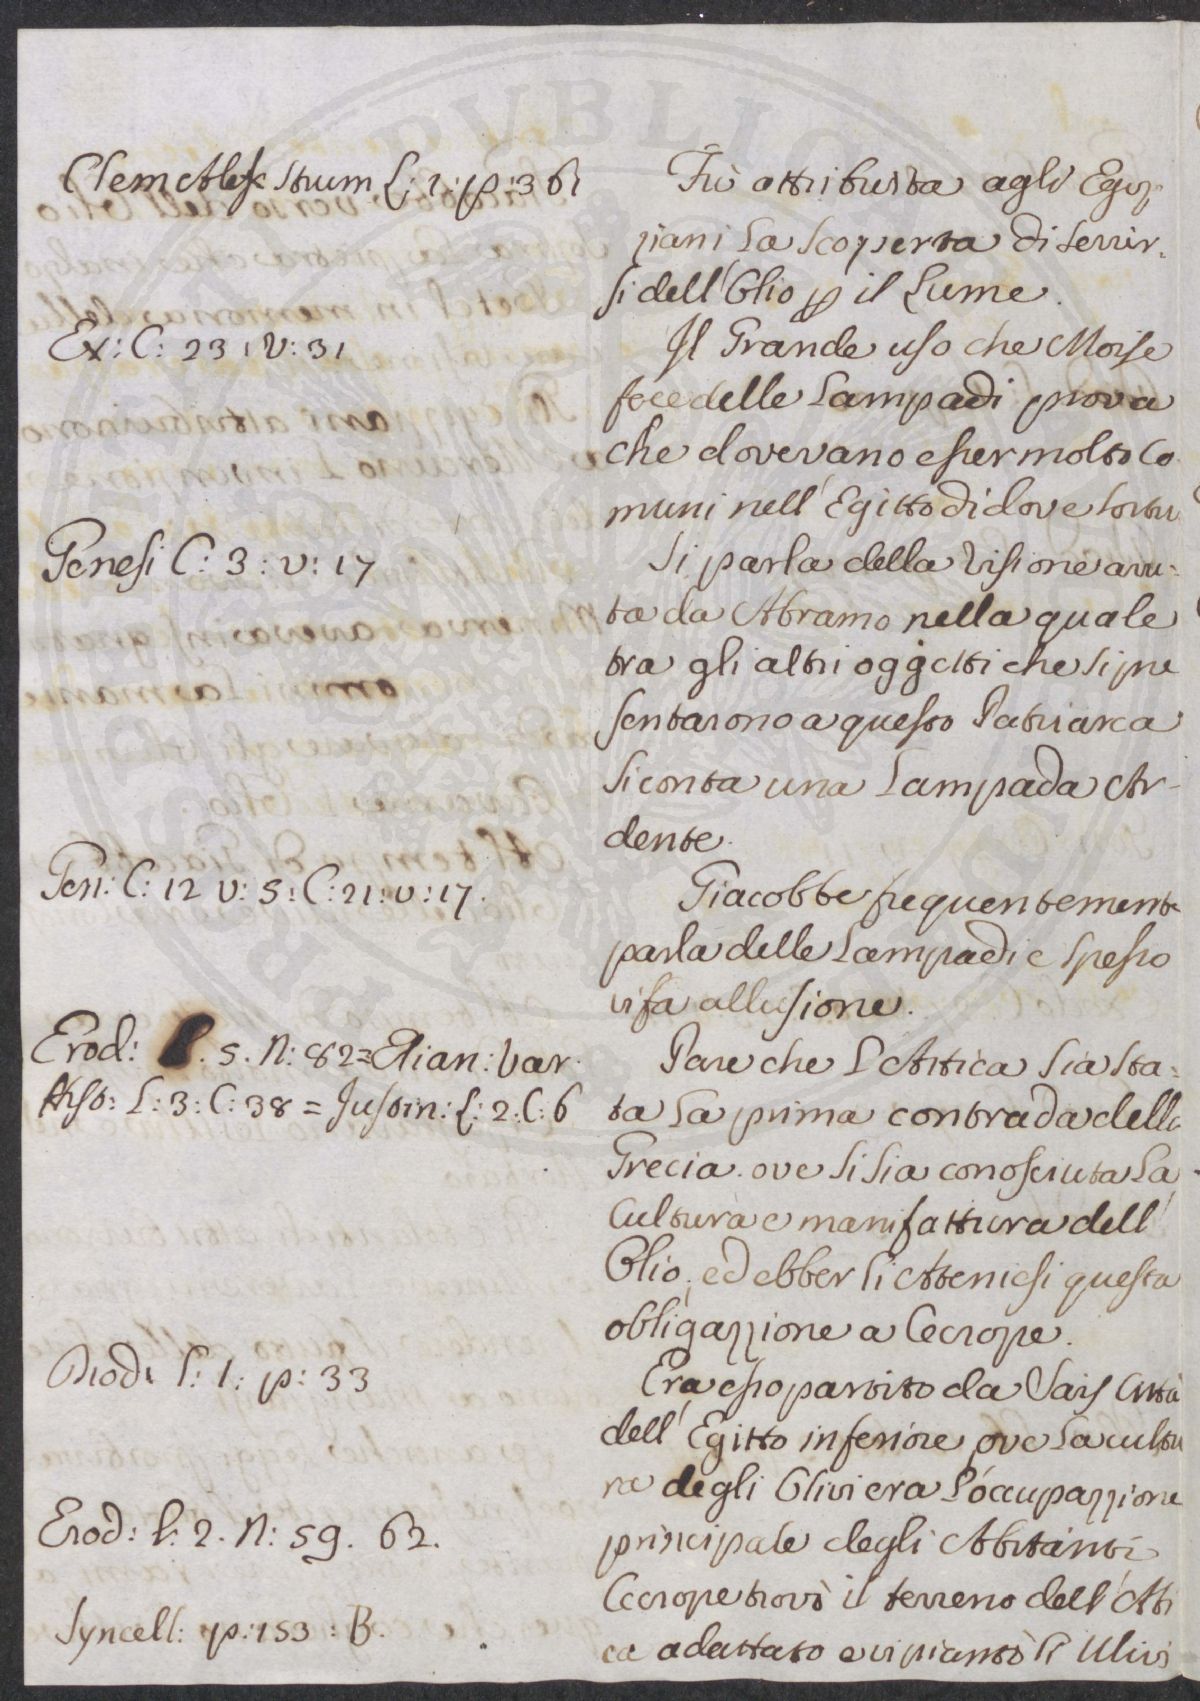 Clem Alex Strum L: 1: p: 361
Fù attribuita agli Egiz
ziani la scoperta di servir
si dell'Olio p il Lume.
Ex: C: 23: V: 31
Il Grande uso che Moise
fece delle Lampadi prova
che dovevano esser molto co
muni nell'Egitto di dove sortu
Genesi C: 3: v: 17
Si parla della Visione avu:
ta da Abramo nella quale
tra gli altri oggetti che si pre
sentarono a questo Patriarca
si conta una Lampada Ar-
dente.
Gen: C: 12 V: 5: C: 21: v: 17.
Giacobbe frequentemente
parla delle Lampadi e spesso
vi fa allusione.
Erod: l. 5. N: 82 = Elian: Var.
Hist: L: 3: C: 38 = Justin: L: 2. C: 6
Pare che l'Attica sia sta:
ta la prima contrada della
Grecia ove si sia conosciuta la
Cultura e manifattura dell'
Olio, ed ebber li Ateniesi questa
obligazzione a Cecrope.
Diod: l: 1: p: 33
Era esso partito da Sais Città
dell'Egitto inferiore ove la cultu
ra degli Olivi era l'occupazzione
Erod: l: 2. N: 59. 62.
principale degli Abitanti
Cecrope trovò il terreno dell'Atti
Syncell: p: 153: B.
ca adattato e vi piantò li Ulivi